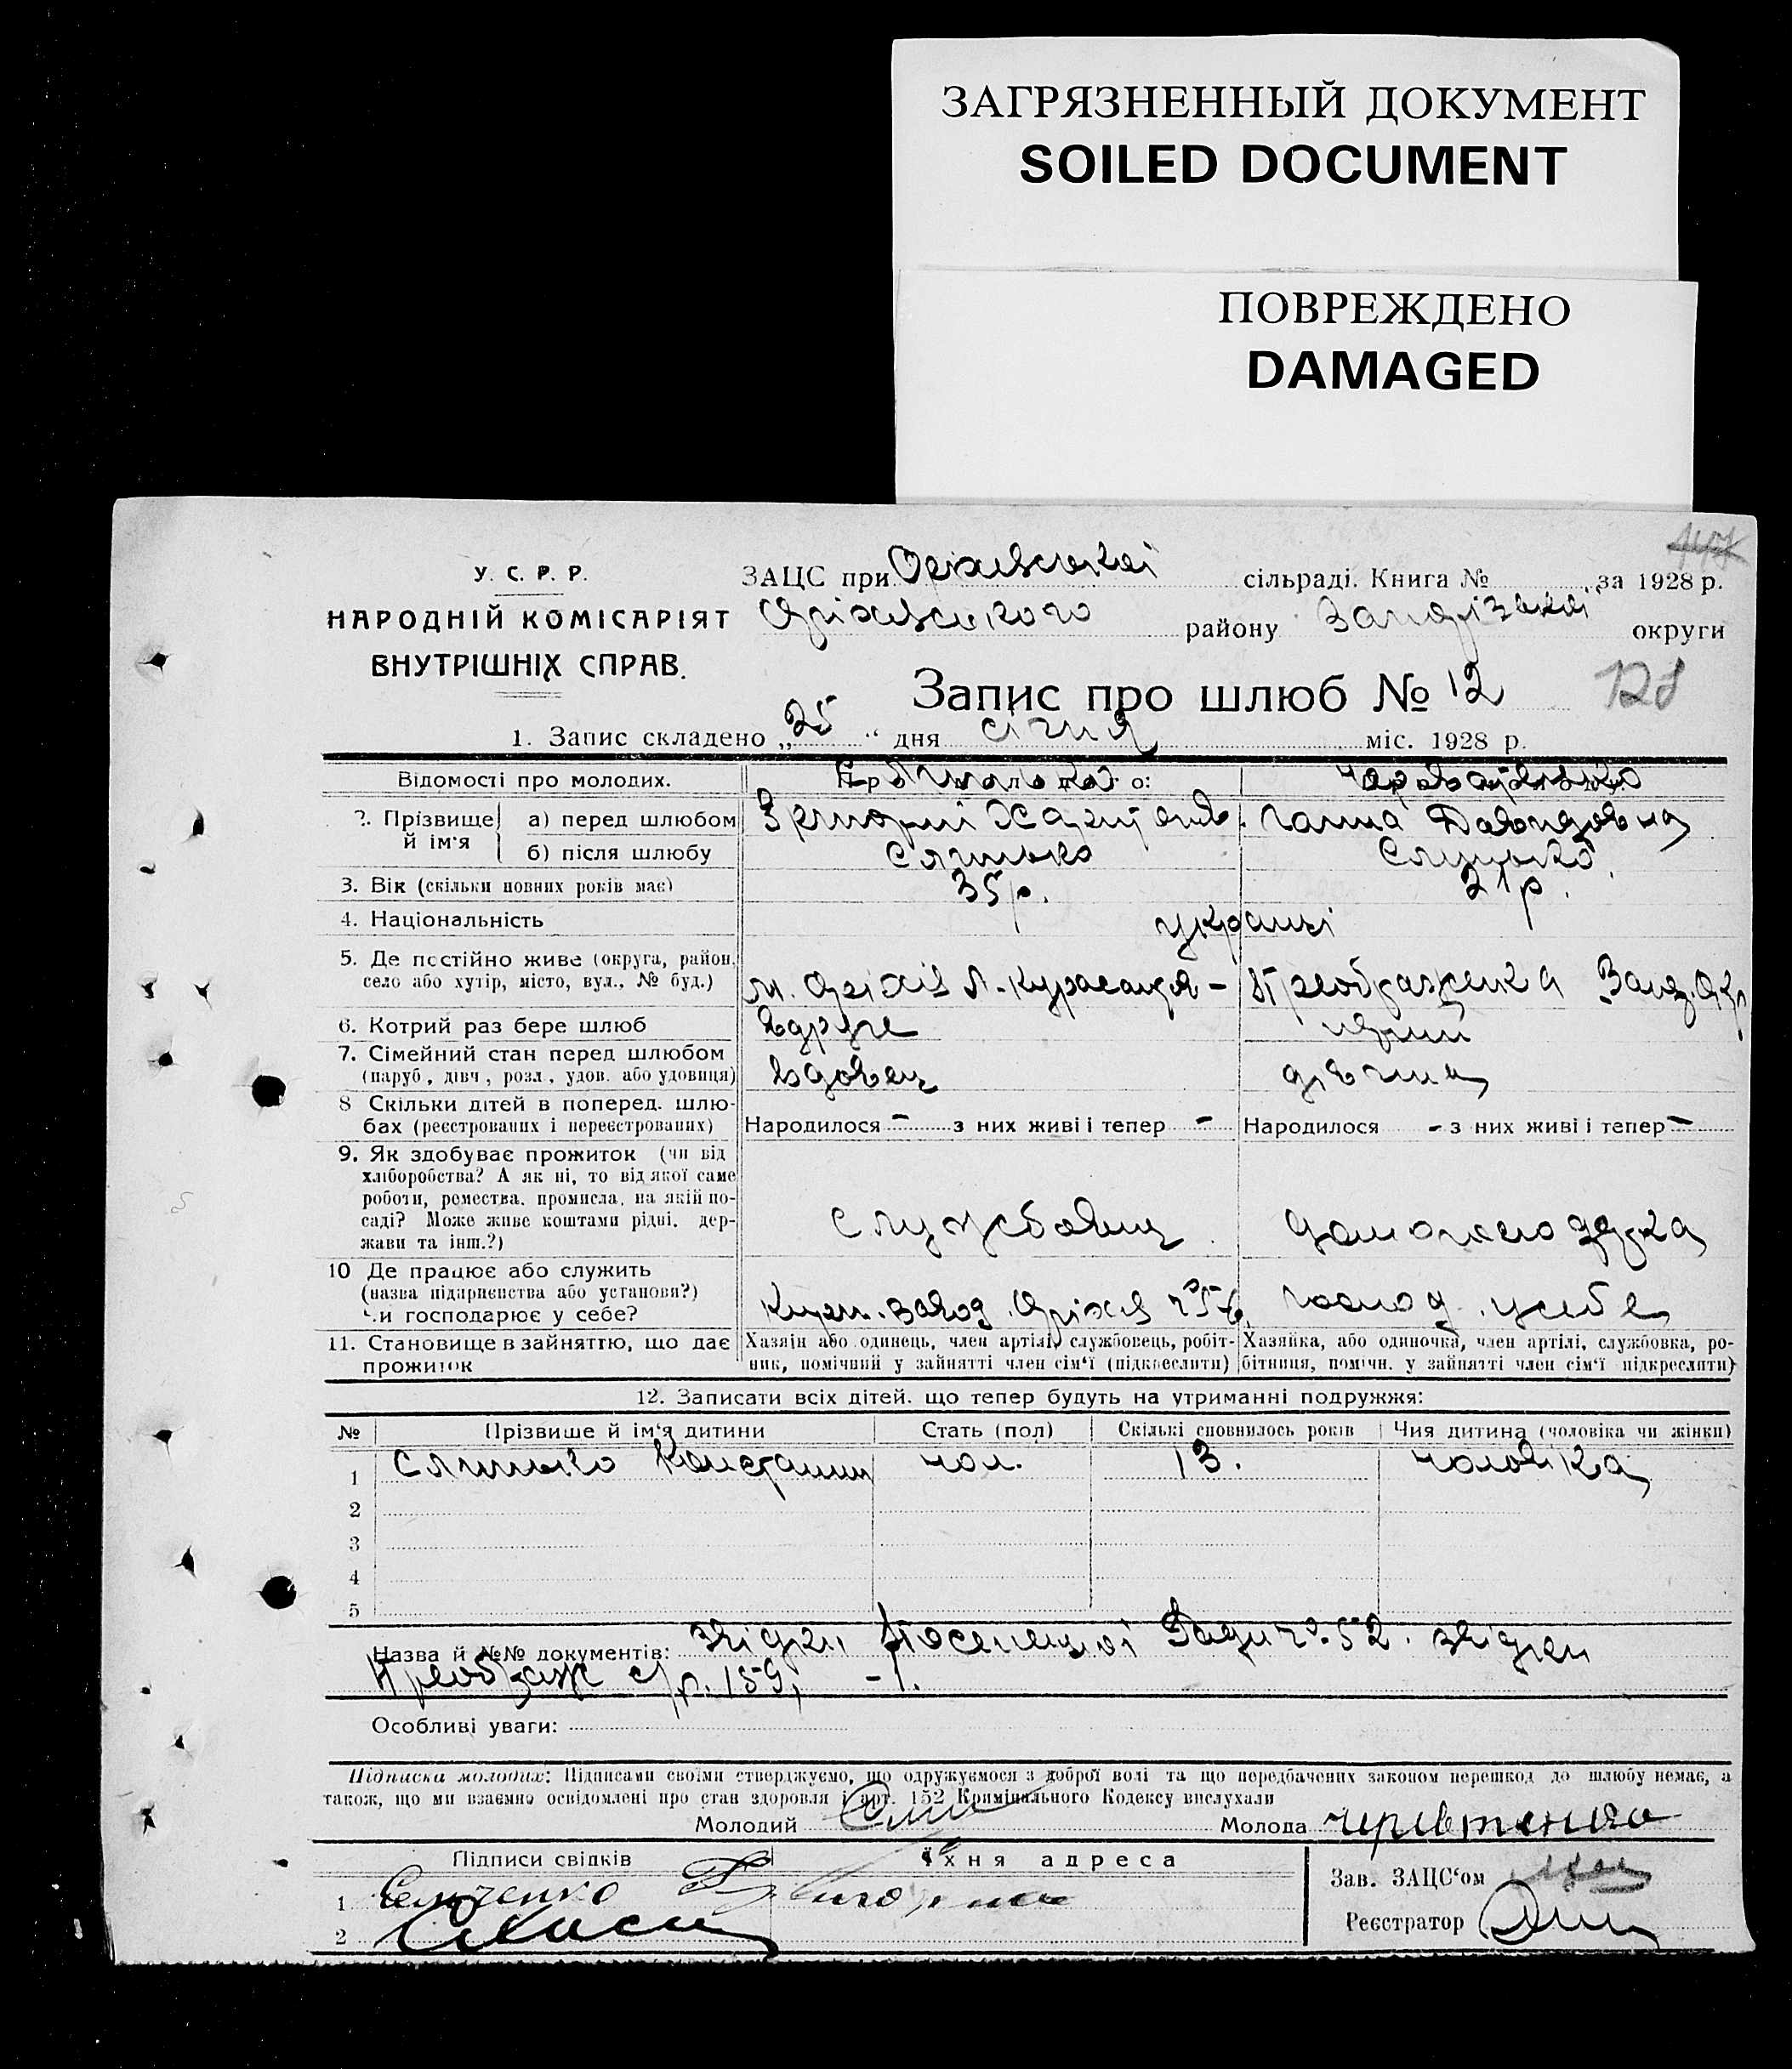 ЗАГРЯЗНЕННЫЙ ДОКУМЕНТ
SOILED DOCUMENT
ПОВРЕЖДЕНО
DAMAGED
У. С. Р. Р.
НАРОДНІЙ КОМІСАРІЯТ
ВНУТРІШНІХ СПРАВ.
ЗАЦС при Оріхівської сільраді. Книга № за 1928 р.
Оріхівського району Запорізької округи
Запис про шлюб № 12
128
1. Запис складено „25“ дня січня міс. 1928 р.
Відомості про молодих.
2. Прізвище й ім'я
а) перед шлюбом Ганна Давидовна
б) після шлюбу Слинько Слинько
3. Вік (скільки повних років має) 35 р. 21 р.
4. Національність українці
5. Де постійно живе (округа, район, село або хутір, місто, вул., № буд.) м. Оріхів Преображенка Запор. окр.
6. Котрий раз бере шлюб вдруге перший
7. Сімейний стан перед шлюбом (паруб., дівч., розл., удов. або удовиця) вдовец дівчина
8 Скільки дітей в поперед. шлюбах (реєстрованих і нереєстрованих) Народилося – з них живі і тепер – Народилося – з них живі і тепер –
9. Як здобуває прожиток (чи від хліборобства? А як ні, то від якої саме роботи, ремества, промисла, на якій посаді? Може живе коштами рідні, держави та інш.?) службовец домогосподарка
10 Де працює або служить (назва підприєнства або установи?) Чи господарює у себе? завод Оріхів господ. у себе
11. Становище в зайняттю, що дає прожиток
Хазяін або одинець, член артілі, службовець, робітник, помічний у зайнятті член сім'ї (підкреслити)
Хазяйка, або одиночка, член артілі, службовка, робітниця, помічн. у зайнятті член сім'ї підкреслити)
12. Записати всіх дітей, що тепер будуть на утриманні подружжя:
№ Прізвище й ім'я дитини Стать (пол) Скількі сповнилось років Чия дитина (чоловіка чи жінки)
1 Слинько Констанин чол. 13. чоловіка
2
3
4
5
Назва й №№ документів: Ради № 52.
Преображ с/р. 159,
Особливі уваги:
Підписка молодих: Підписами своїми стверджуємо, що одружуємося з доброї волі та що передбачених законом перешкод до шлюбу немає, а
також, що ми взаємно освідомлені про стан здоровля і арт. 152 Кримінального Кодексу вислухали
Молодий Молода
Підписи свідків Їхня адреса
Зав. ЗАЦС'ом
1
2
Реєстратор